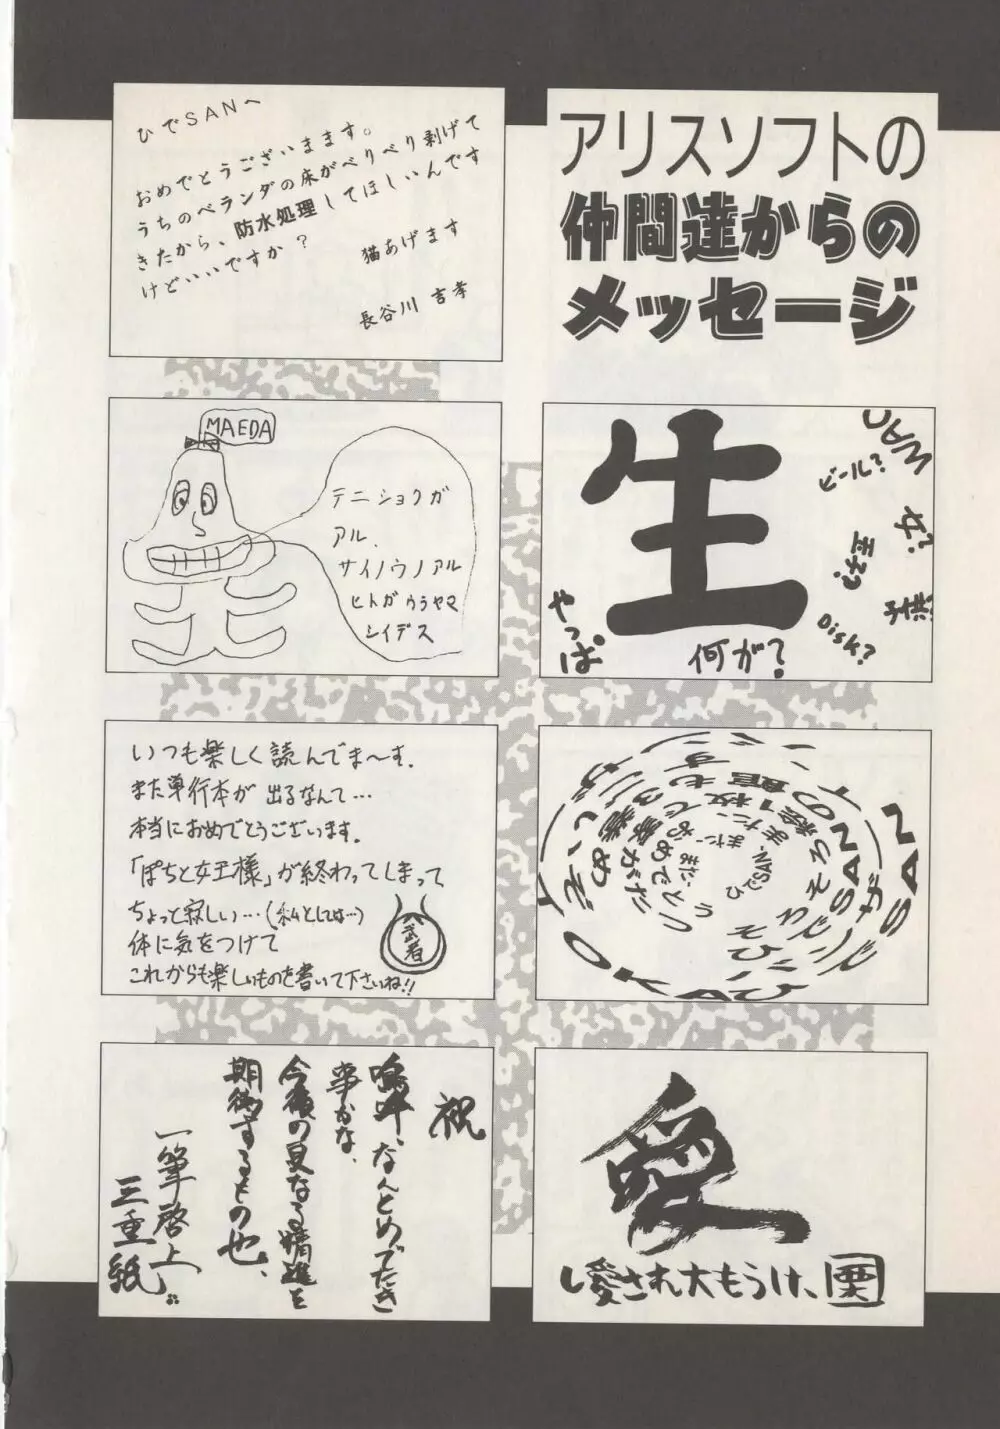 アリスソフトの
仲間達からの
メッセージ
ひでSANへ
おめでとうございまます。
うちのベランダの床がべりべり剥げて
きたから、防水処理してほしいんです
けどいいですか?
猫あげます
長谷川 吉孝
生
MAC
ビール?
女?
主?
子供?
Disk?
やっぱ。
何が?
MAEDA
テニショクガ
アル、
サイノウノアル
ヒトガウラヤマ
シイデス
いつも楽しく読んでま〜す.
また単行本が出るなんて…
本当におめでとうございます.
「ぽちと女王様」が終わってしまって
ちょっと寂しい…(私としては…)
体に気をつけて
これからも楽しいものを書いて下さいね!!
武者
ひでSAN
愛
し愛され大もうけ、
祝
嗚呼、なんとめでたき
事かな、
今後の更なる精進を
期待するもの也、
一筆啓上。
三重紙